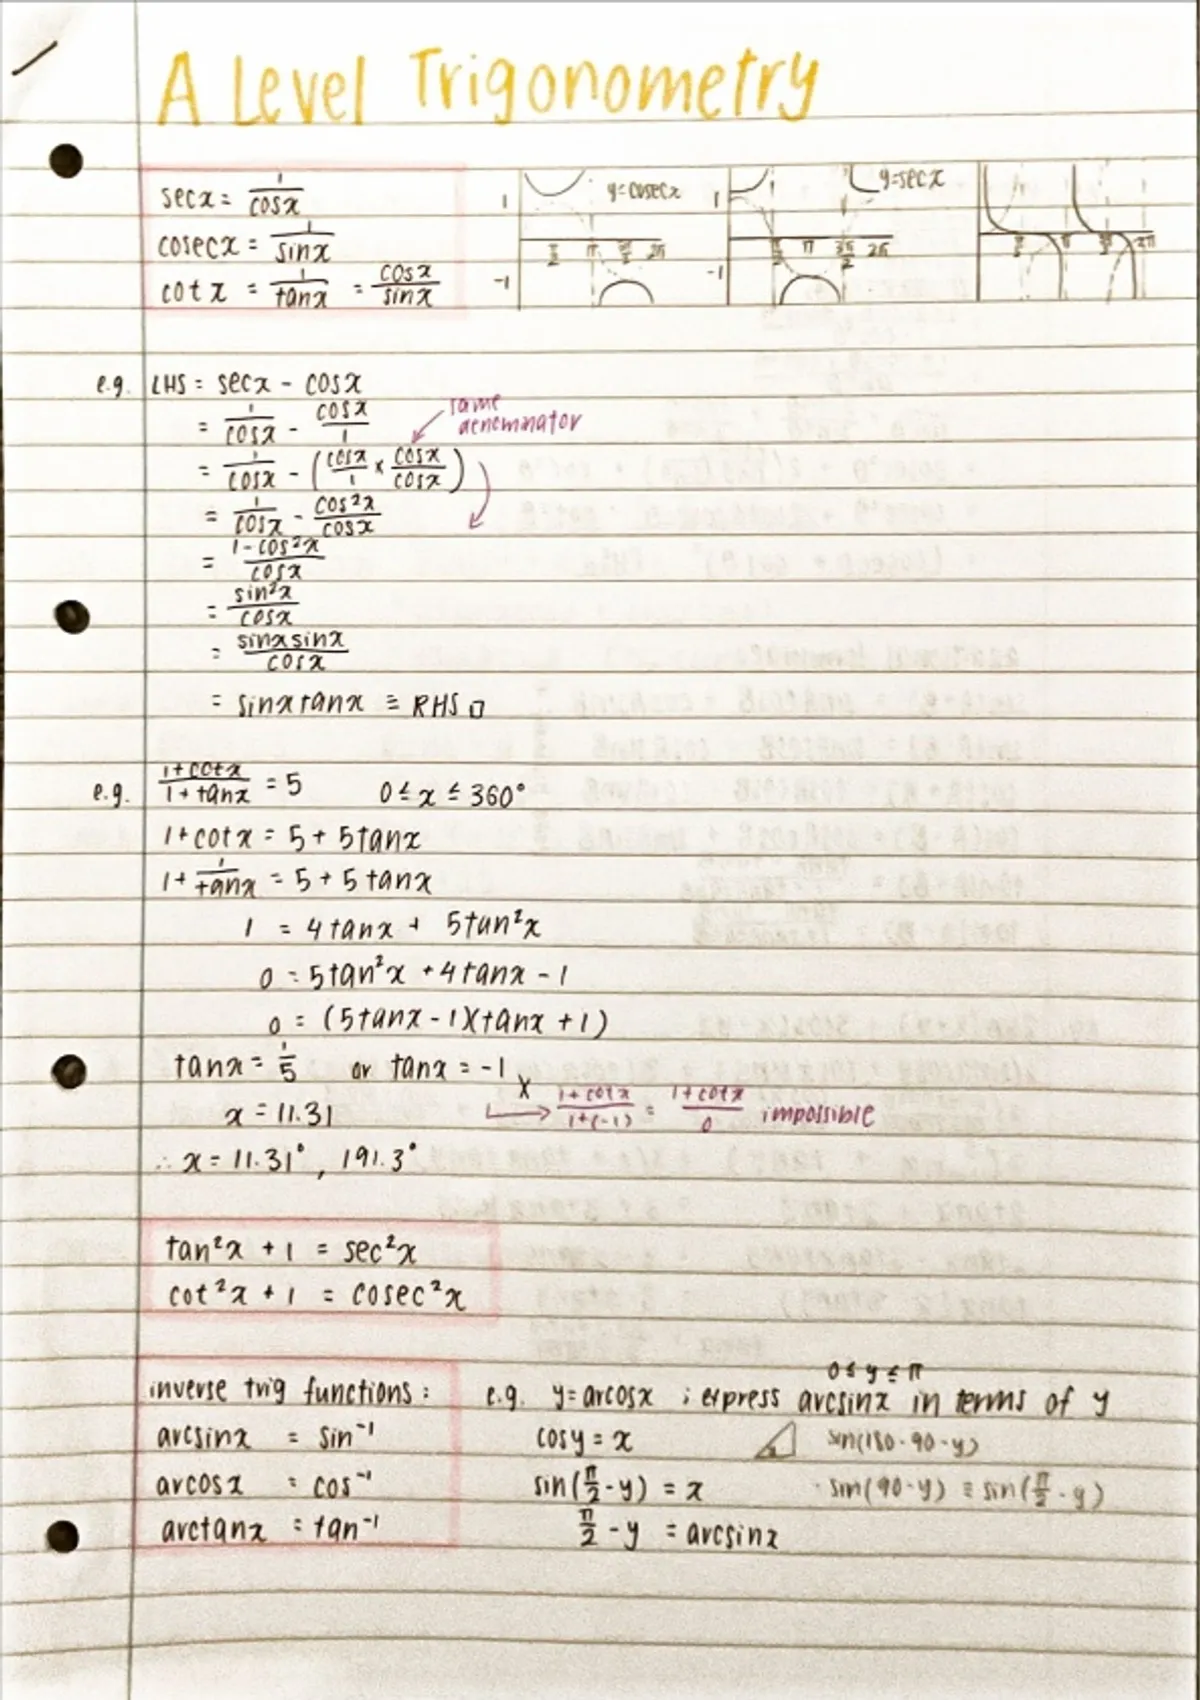 A Level Trigonometry
secx = 1/cosx
cosecx = 1/sinx
cotx = 1/tanx = cosx/sinx
1 y=cosecx
π/2 π 3π/2 2π
-1
1 y=secx
π/2 π 3π/2 2π
-1
π/2 π 3π/2 2π
e.g. LHS = secx - cosx
= 1/cosx - cosx/1
same denominator
= 1/cosx - (cosx/1 × cosx/cosx)
= 1/cosx - cos²x/cosx
= 1-cos²x/cosx
= sin²x/cosx
= sinxsinx/cosx
= sinxtanx ≡ RHS □
e.g. 1+cotx/1+tanx = 5 0≤x≤360°
1+cotx = 5+5tanx
1+1/tanx = 5+5tanx
1 = 4tanx + 5tan²x
0 = 5tan²x +4tanx -1
0 = (5tanx-1)(tanx+1)
tanx = 1/5 or tanx = -1 X
x = 11.31 → 1+cotx/1+(-1) = 1+cotx/0 impossible
∴ x = 11.31°, 191.3°
tan²x + 1 = sec²x
cot²x + 1 = cosec²x
inverse trig functions:
arcsinx = sin⁻¹
arcosx = cos⁻¹
arctanx = tan⁻¹
0≤y≤π
e.g. y=arcosx ; express arcsinx in terms of y
cosy = x sin(180-90-y)
sin(π/2-y) = x · sin(90-y) ≡ sin(π/2-y)
π/2-y = arcsinx